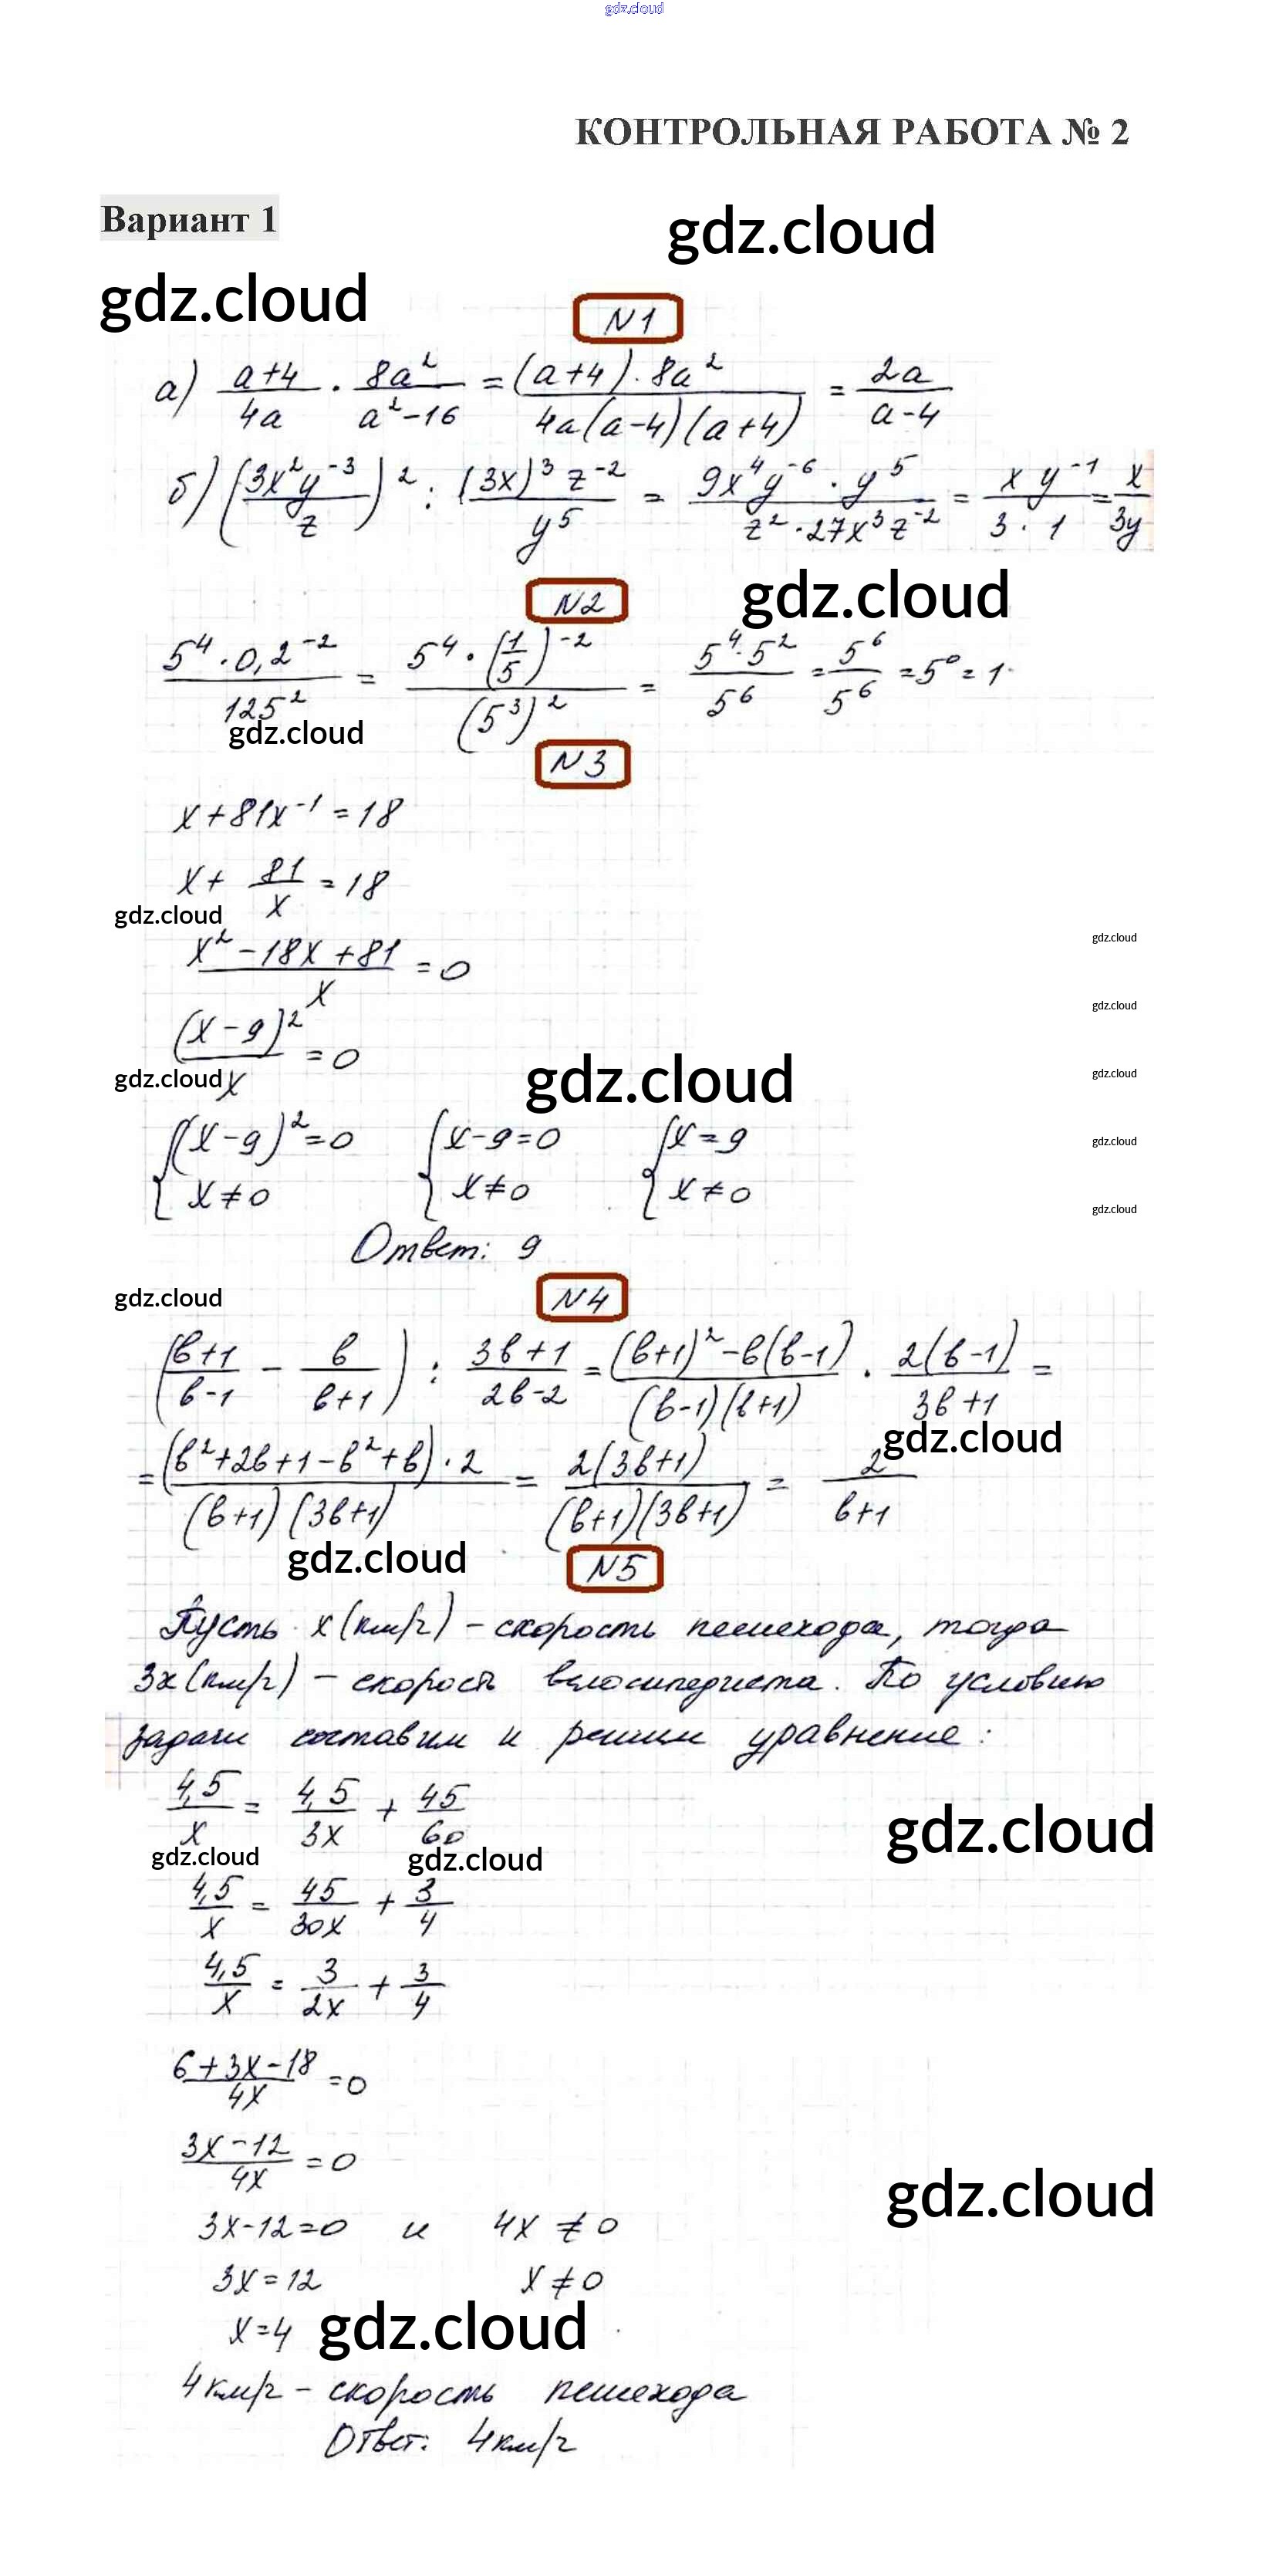 gdz.cloud
КОНТРОЛЬНАЯ РАБОТА № 2
Вариант 1
gdz.cloud
gdz.cloud
N1
а) (a+4)/(4a) · (8a²)/(a²-16) = ((a+4)·8a²)/(4a(a-4)(a+4)) = (2a)/(a-4)
б) ((3x²y⁻³)/z)² : ((3x)³z⁻²)/(y⁵) = (9x⁴y⁻⁶·y⁵)/(z²·27x³z⁻²) = (xy⁻¹)/(3·1) = x/(3y)
N2
gdz.cloud
(5⁴·0,2⁻²)/(125²) = (5⁴·(1/5)⁻²)/((5³)²) = (5⁴·5²)/(5⁶) = 5⁶/5⁶ = 5⁰ = 1
gdz.cloud
N3
x+81x⁻¹=18
x+ 81/x = 18
gdz.cloud
gdz.cloud
(x²-18x+81)/x = 0
gdz.cloud
((x-9)²)/x = 0
gdz.cloud
gdz.cloud
gdz.cloud
{(x-9)²=0 {x-9=0 {x=9
gdz.cloud
x≠0 x≠0 x≠0
gdz.cloud
Ответ: 9
gdz.cloud
N4
((в+1)/(в-1) - в/(в+1)) : (3в+1)/(2в-2) = ((в+1)²-в(в-1))/((в-1)(в+1)) · (2(в-1))/(3в+1) =
gdz.cloud
= ((в²+2в+1-в²+в)·2)/((в+1)(3в+1)) = (2(3в+1))/((в+1)(3в+1)) = 2/(в+1)
gdz.cloud
N5
Пусть x(км/ч) - скорость пешехода, тогда
3x(км/ч) - скорость велосипедиста. По условию
задачи составим и решим уравнение:
4,5/x = 4,5/3x + 45/60
gdz.cloud
gdz.cloud
gdz.cloud
4,5/x = 45/30x + 3/4
4,5/x = 3/2x + 3/4
(6+3x-18)/4x = 0
(3x-12)/4x = 0
gdz.cloud
3x-12=0 и 4x ≠ 0
3x=12 x≠0
x=4
gdz.cloud
4км/ч - скорость пешехода
Ответ: 4км/ч